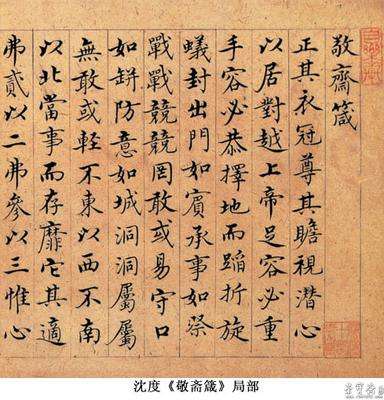 敬齋箴
正其衣冠尊其瞻視潜心
以居對越上帝足容必重
手容必恭擇地而蹈折旋
蟻封出門如賓承事如祭
戰戰兢兢罔敢或易守口
如缾防意如城洞洞屬屬
無敢或輕不東以西不南
以北當事而存靡它其適
弗貳以二弗參以三惟心
沈度《敬斋箴》局部